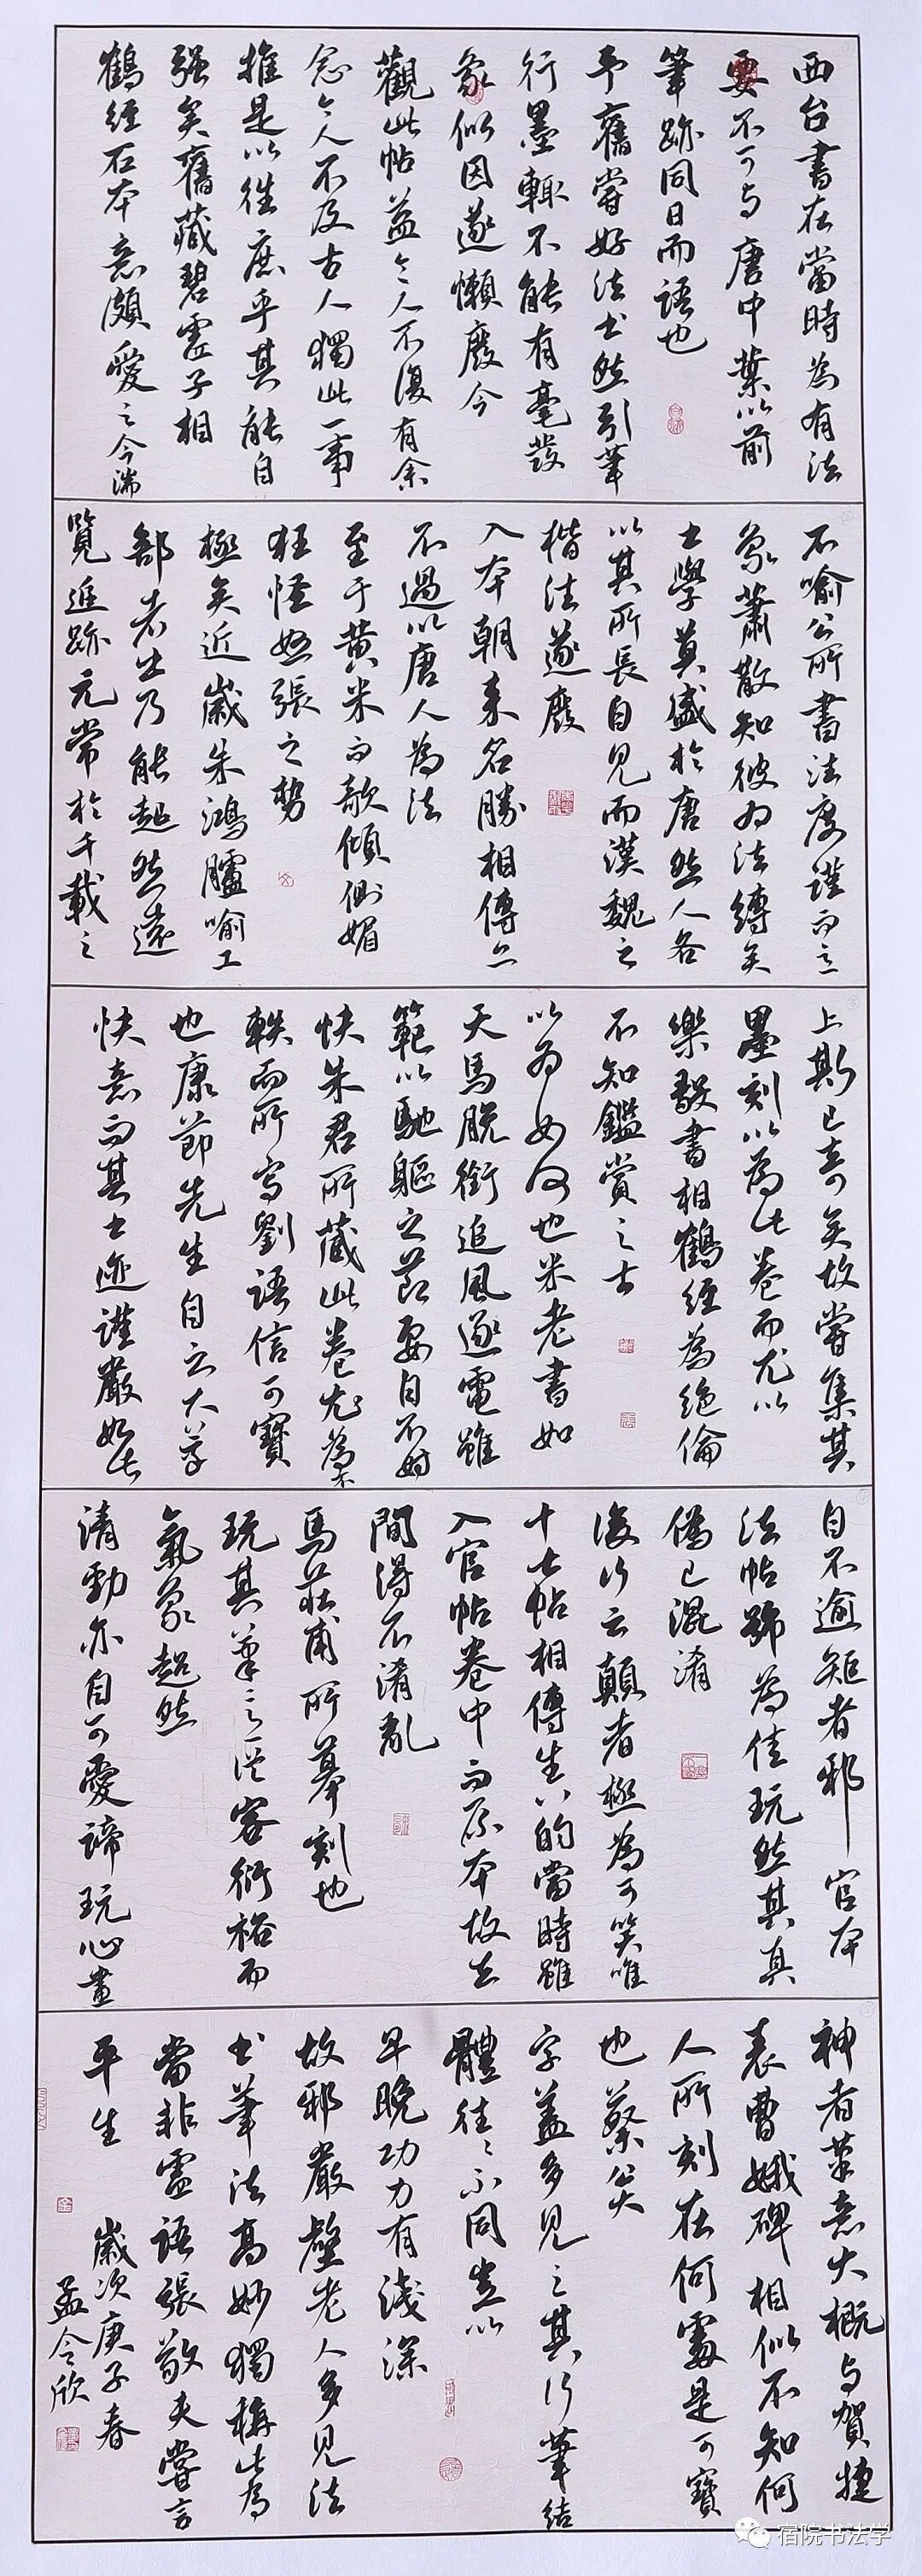 西台書在當時為有法
要不可与唐中葉以前
筆跡同日而語也
予舊嘗好法书然引筆
行墨輒不能有毫發
象似因遂懶廢今
觀此帖益令人不復有余
念今人不及古人獨此一事
推是以往庶乎其能自
强矣舊藏碧虛子相
鶴經石本意頗愛之今湍
不喻公所書法度谨而意
象蕭散知彼为法縛矣
士學莫盛於唐然人各
以其所長自見而漢魏之
楷法遂廢
入本朝来名勝相傳亦
不過以唐人為法
至于黄米而欹傾側媚
狂怪怒張之勢
極矣近歲朱鴻臚喻工
部者出乃能超然遠
覽追跡元常於千載之
上斯已奇矣故嘗集其
墨刻以為此卷而尤以
樂毅書相鶴經為絶倫
不知鑑賞之士
以为如何也米老書如
天馬脱銜追風逐電雖
範以馳驅之節要自不妨
快朱君所藏此卷尤為不
軼而所寫劉語信可寶
也康節先生自云大筆
快意而其书迹謹嚴如此
自不逾矩者邪 官本
法帖號為佳玩然其真
偽已混淆
後行云顛者極為可笑唯
十七帖相傳生的當時雖
入官帖卷中而原本故在
間得不淆亂
馬莊甫所摹刻也
玩其筆意從容衍裕而
氣象超然
清勁亦自可愛諦玩心畫
神者筆意大概与賀捷
表曹娥碑相似不知何
人所刻在何處是可寶
也蔡公
字蓋多見之其行筆结
體往往不同豈以
早晚功力有淺深
故邪嚴壑老人多見法
书筆法高妙獨稱此為
當非虛語張敬夫嘗言
平生 歲次庚子春
孟令欣
宿院书法学